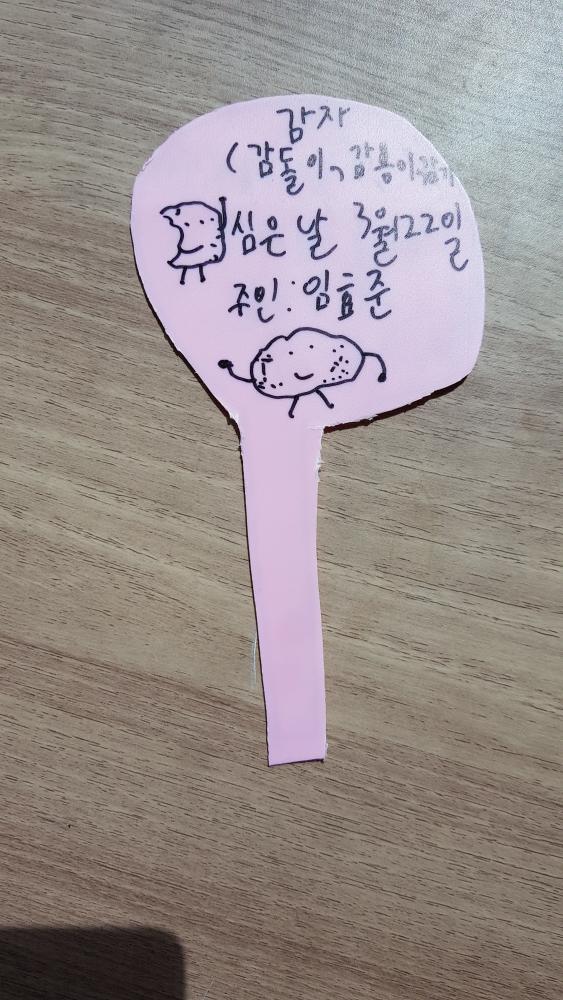 감자
(감돌이, 감룡이
심은 날 3월22일
주인: 임효준